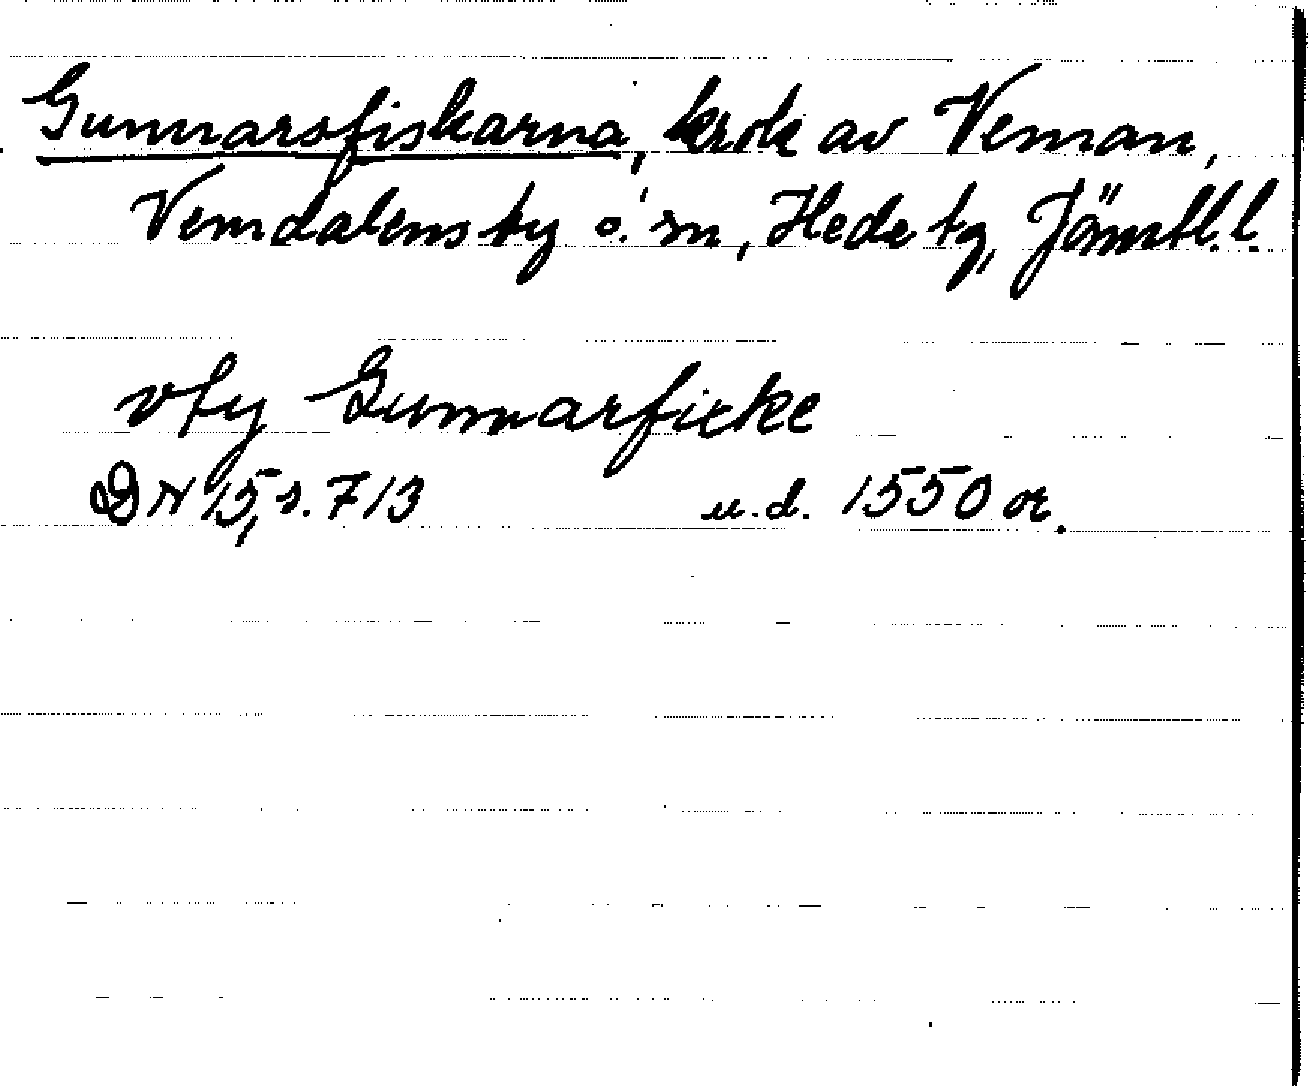 Gunnarsfiskarna, krok av Veman,
Vemdalens by o. sn, Hede tg, Jämtl. l.
vfy Gunnarficke
DN 15, s. 713 u.d. 1550 or.